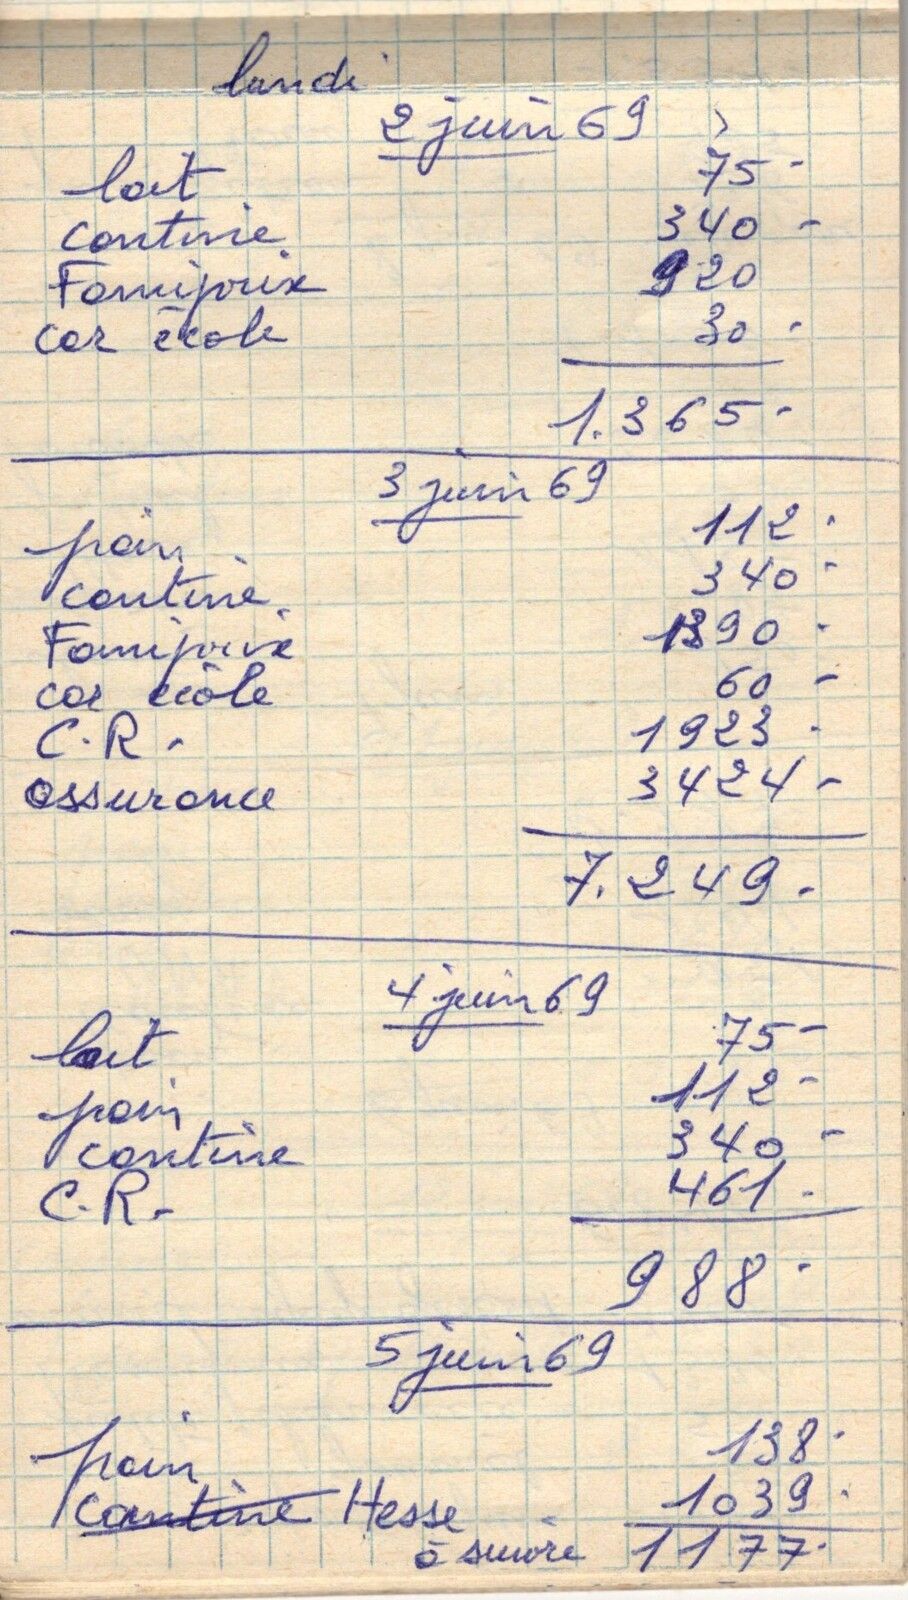 lundi
2 juin 69
lait 75-
cantine 340-
Famiprix 920
car école 30-
1.365-
3 juin 69
pain 112-
cantine 340-
Famiprix 1390-
car école 60-
C.R. 1923-
assurance 3424-
7.249-
4 juin 69
lait 75-
pain 112-
cantine 340-
C.R. 461-
988-
5 juin 69
pain 138-
cantine Hesse 1039-
à suivre 1177-